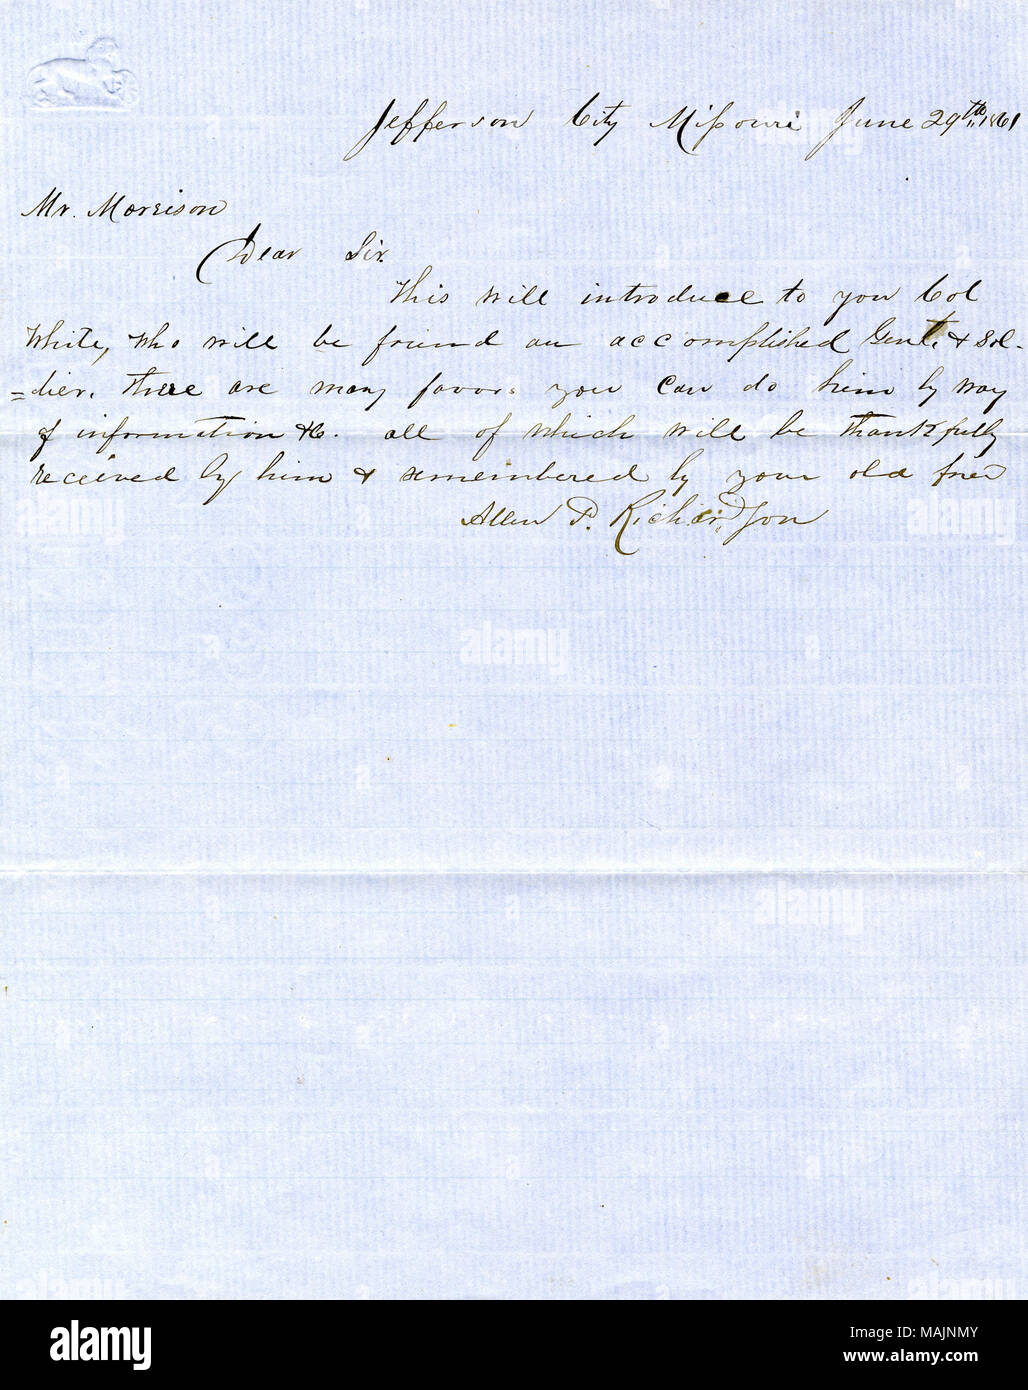 Jefferson City Missouri June 29th 1861
Mr. Morrison
Dear Sir.
This will introduce to you Col
White, who will be found an accomplished Gent. & Sol-
=dier. There are many favors you can do him by way
of information &C. all of which will be thankfully
received by him & remembered by your old fried
Allen P. Richardson
alamy
Image ID: MAJNMY
www.alamy.com